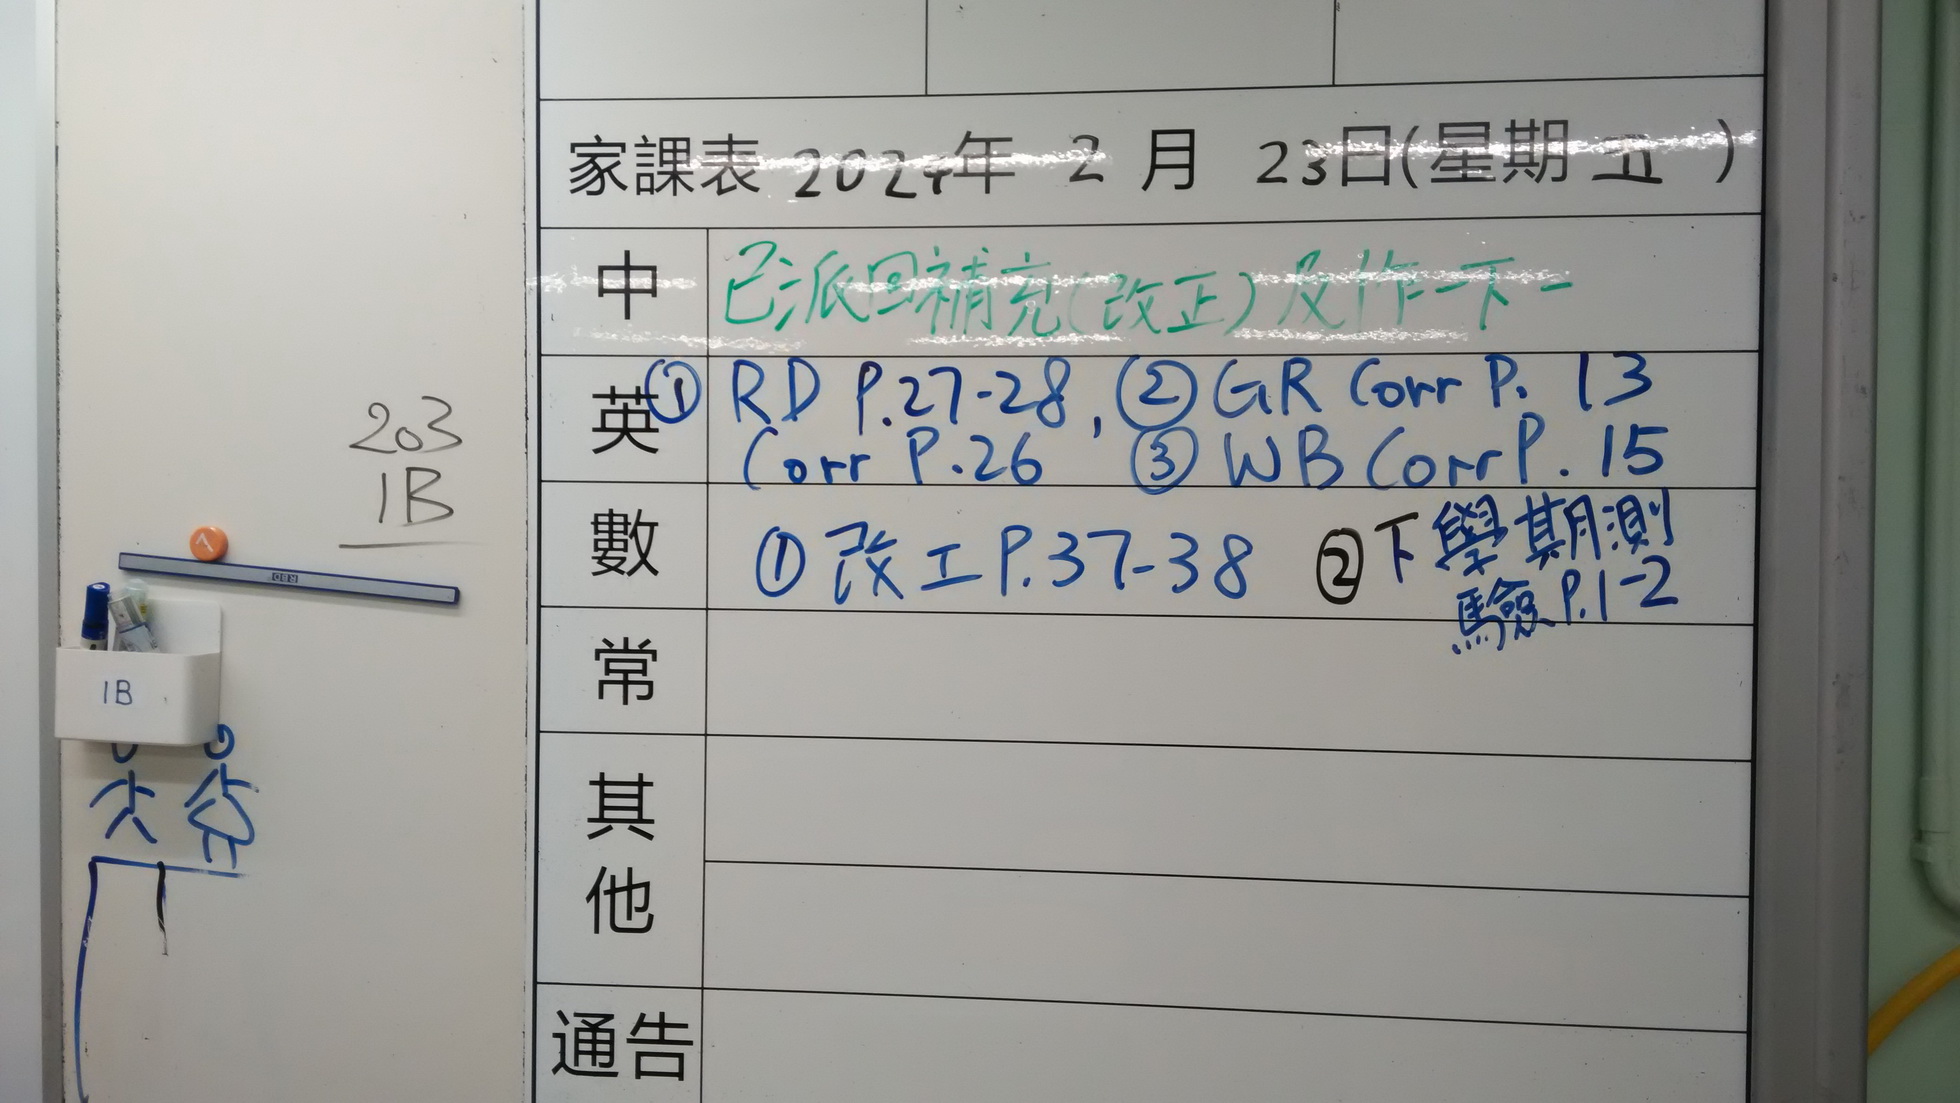 家課表 2024年 2 月 23日(星期 五 )
中 已派回補充(改正)及作一下一
英 ① RD P.27-28, ② GR Corr P. 13
Corr P.26 ③ WB Corr P. 15
數 ① 改工P.37-38 ② 下學期測
驗P.1-2
常
其
他
通告
203
1B
RBD
1B